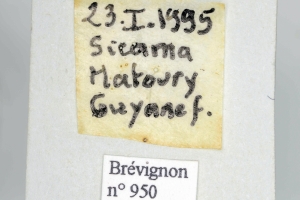 23.I.1995
Sicama
Matoury
Guyane f.
Brévignon
n° 950